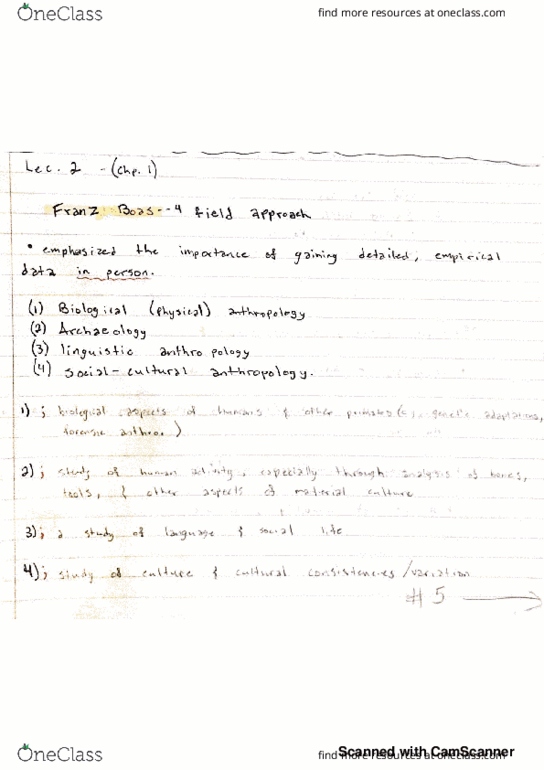 OneClass
find more resources at oneclass.com
Lec. 2 - (Chp. 1)
Franz Boas -- 4 field approach
• emphasized the importance of gaining detailed, empirical
data in person.
(1) Biological (Physical) anthropology
(2) Archaeology
(3) linguistic anthropology
(4) social-cultural anthropology.
1) ; biological aspects of humans & other primates ( genetic adaptations,
forensic anthro.)
2) ; study of human activity, especially through analysis of bones,
tools, & other aspects of material culture
3) ; a study of language & social life
4) ; study of culture & cultural consistencies/variation
#5 →
OneClass
find more resources at oneclass.com
Scanned with CamScanner